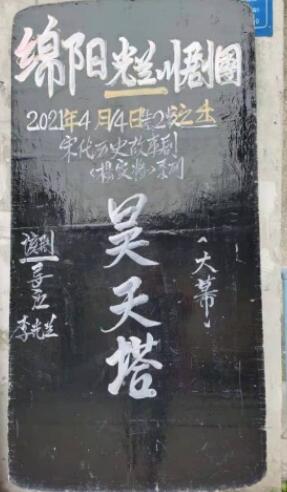 绵阳光兰川剧团
2021年4月14日2点之出
宋代历史故事剧
《杨家将》系列
昊天塔
《大幕》
李光兰